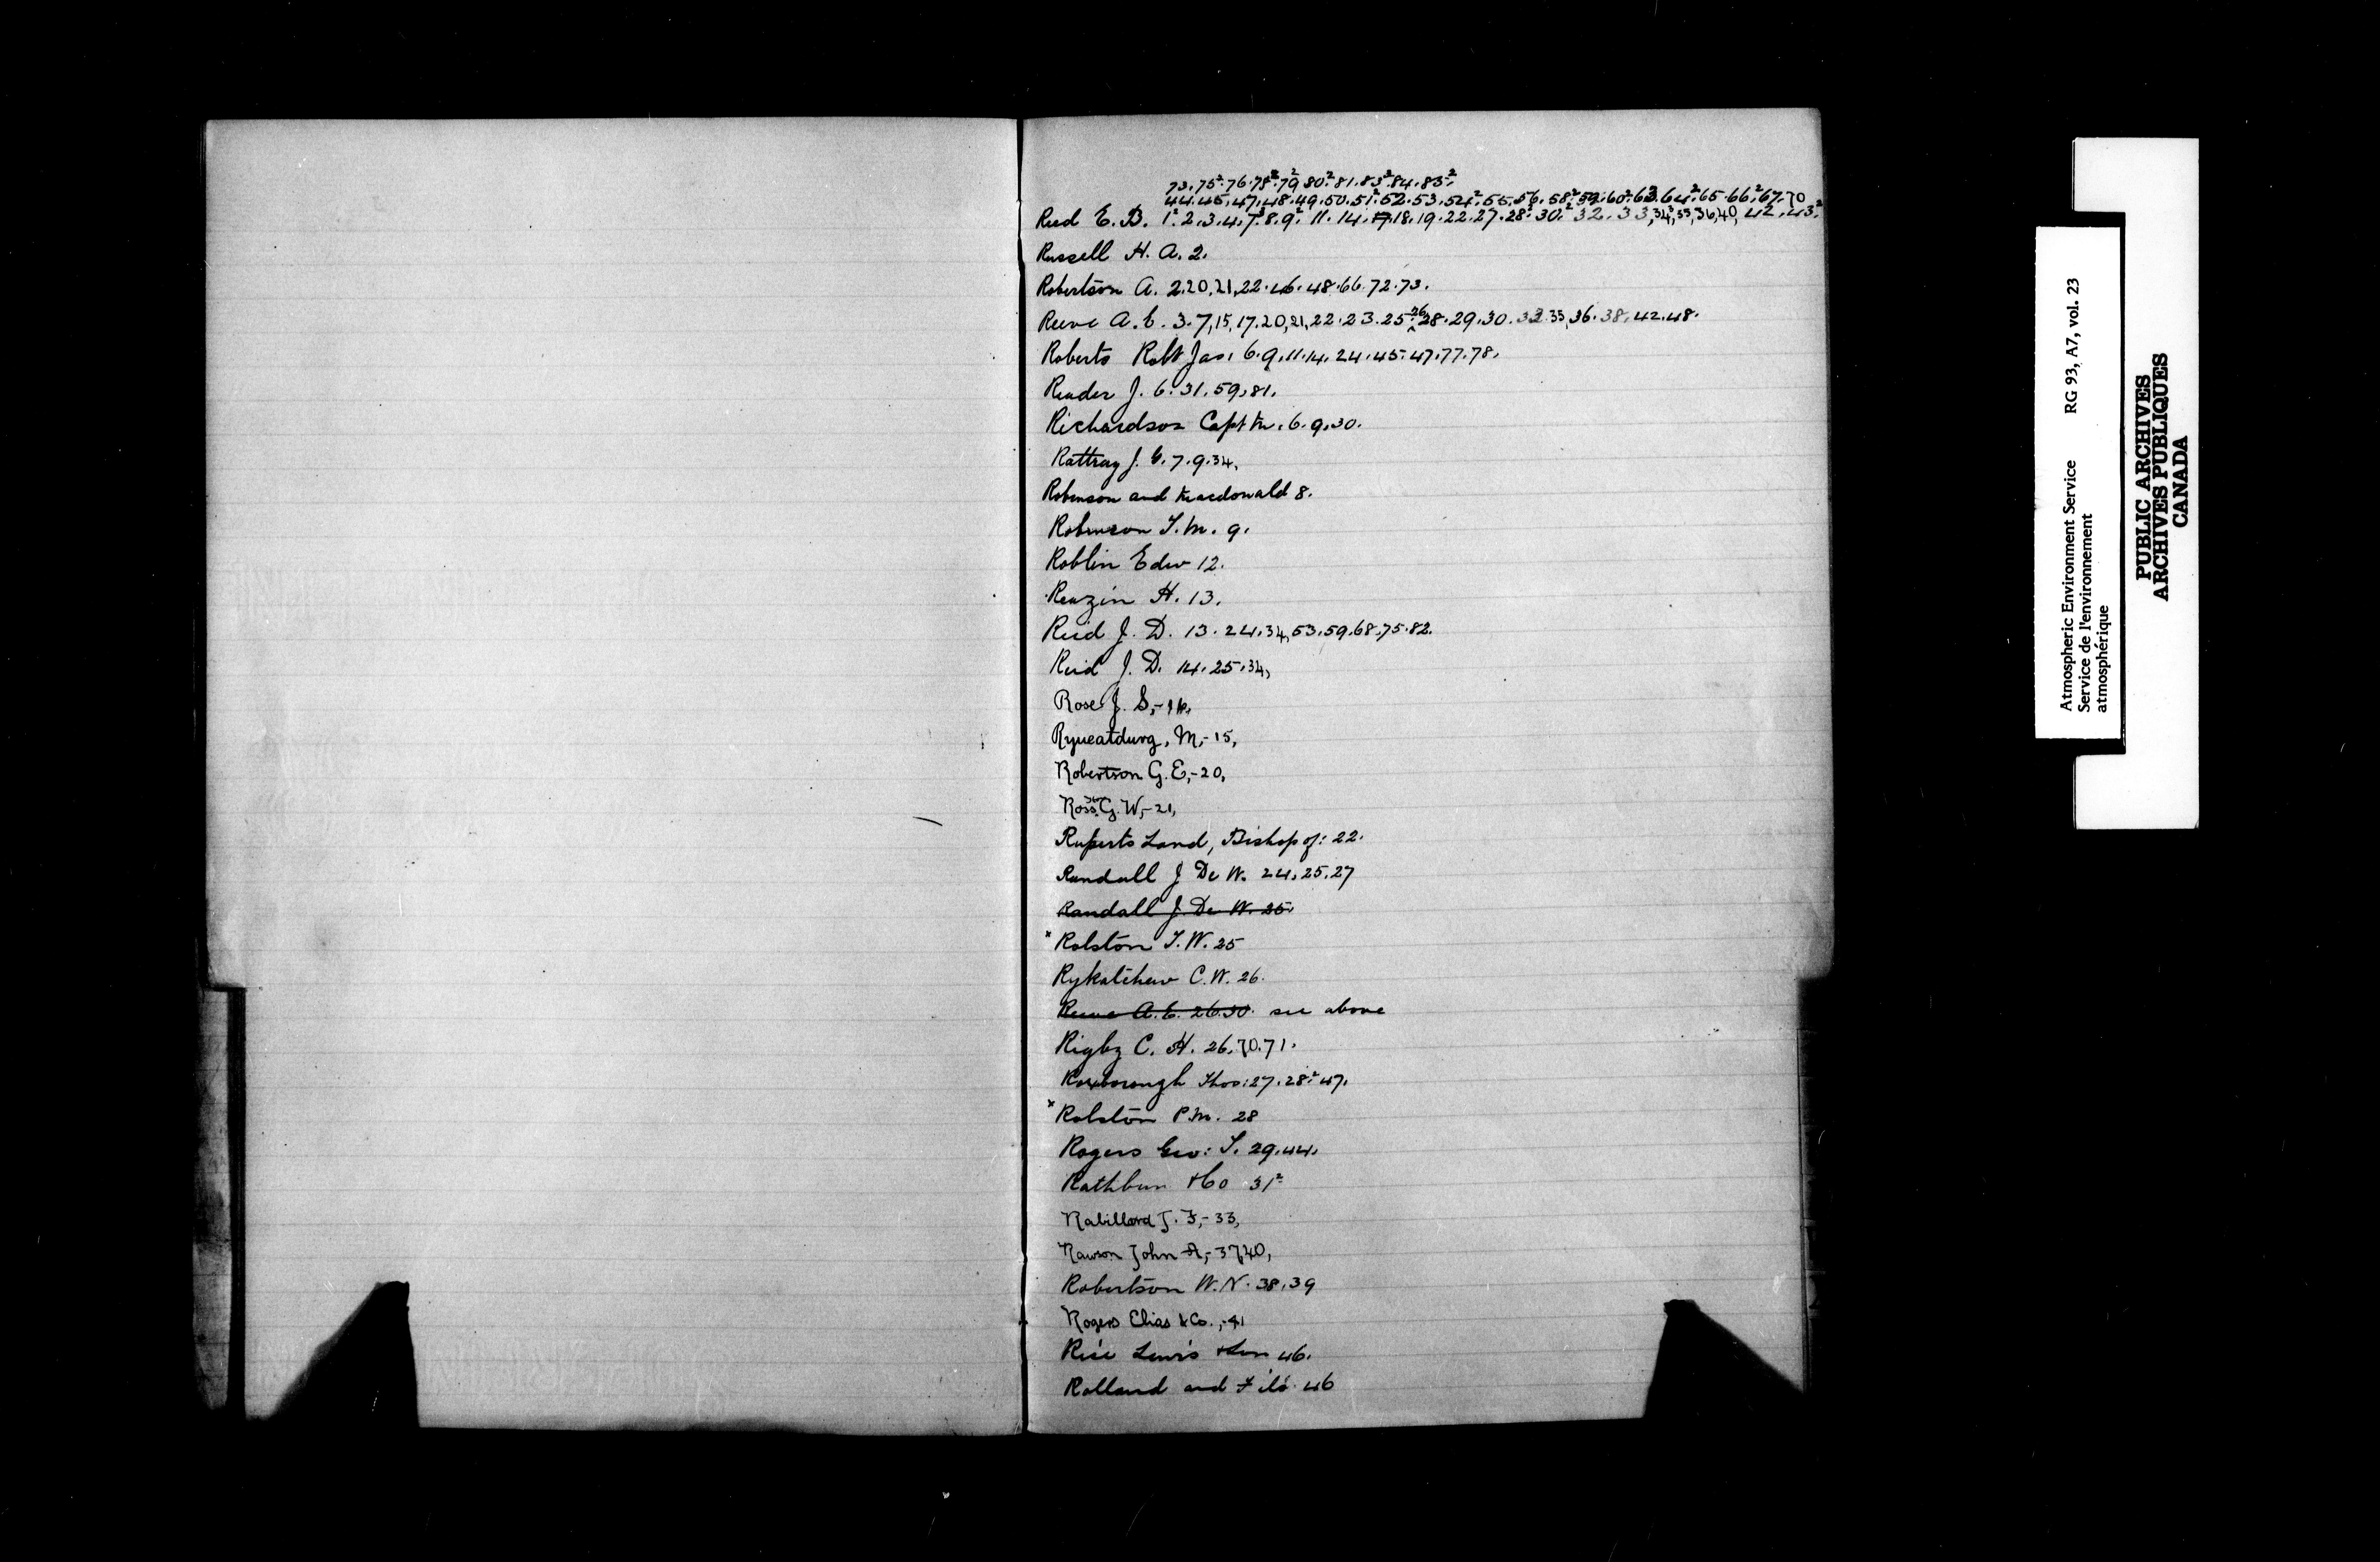 73. 75². 76. 78². 79² 80². 81. 83². 84. 83².
44. 45. 47. 48. 49. 50. 51². 52. 53. 54². 55. 56. 58². 59. 60². 63. 64². 65. 66². 67. 70
Reed E. B. 1². 2. 3. 4. 7². 8. 9². 11. 14. 17. 18. 19. 22. 27. 28². 30². 32. 33, 34², 35, 36, 40, 42. 43².
Russell H. A. 2.
Robertson A. 2. 20. 21, 22. 46. 48. 66. 72. 73.
Reeve A. E. 3. 7, 15, 17. 20, 21, 22. 23. 25. 26. 28. 29. 30. 32. 35, 36. 38, 42. 48.
Roberts Robt Jas. 6. 9. 11. 14. 24. 45. 47. 77. 78.
Reader J. 6. 31. 59. 81.
Richardson Capt M. 6. 9. 30.
Rattray J. E. 7. 9. 34.
Robinson and Macdonald 8.
Robinson T. M. 9.
Roblin Edw 12.
Renzin H. 13.
Reid J. D. 13. 24. 34, 53. 59. 68. 75. 82.
Reid J. D. 14. 25. 34,
Rose J. S,- 14,
M,- 15,
Robertson G. E,- 20,
Ross G. W,- 21,
Ruperts Land, Bishop of: 22.
Randall J De W. 24. 25. 27
Randall J. De W. 25.
× Rolston T. W. 25
Rykatchew C. W. 26.
Reeve A. E. 26. 30. see above
Rigby C. H. 26. 70. 71.
Roxborough Thos: 27. 28². 47.
× Rolston P. M. 28
Rogers Geo: T. 29. 44.
Rathbun & Co 31²
Rabillard J. F,- 33,
Rawson John A,- 37, 40,
Robertson W. N. 38. 39
Rogers Elias & Co. ,- 41
Rice Lewis & Son 46.
Rolland and Fils. 46
Atmospheric Environment Service RG 93, A7, vol. 23
Service de l'environnement
atmosphérique
PUBLIC ARCHIVES
ARCHIVES PUBLIQUES
CANADA